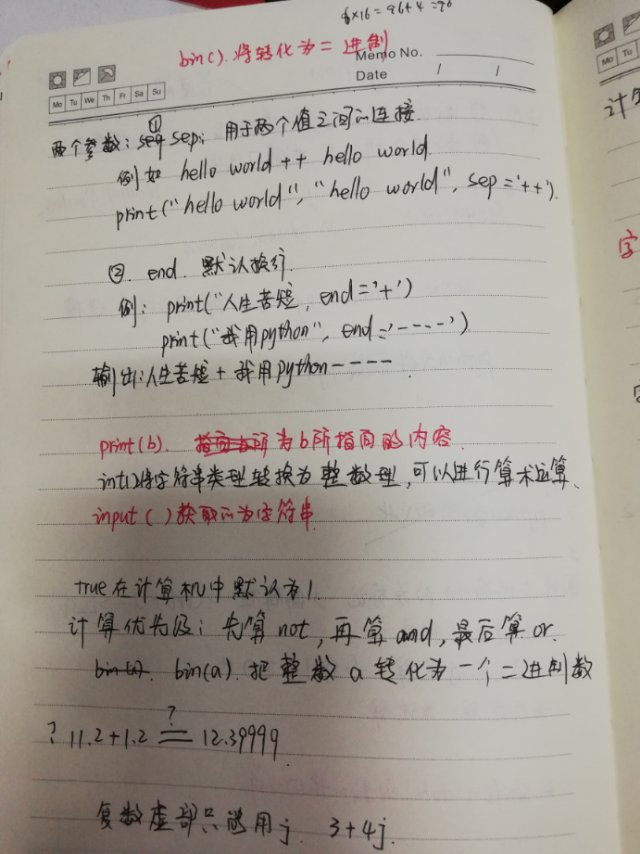 6×16=96+4=90
bin().将转化为二进制
Memo No.
Mo Tu We Th Fr Sa Su
Date / /
两个参数: ① sep: 用于两个值之间的连接.
例如 hello world ++ hello world.
print("hello world", "hello world", sep='++').
②. end. 默认换行.
例: print("人生苦短, end='+')
print("我用python", end='----')
输出:人生苦短 + 我用python----.
print(b). 为b所指向的内容.
int()将字符串类型转换为整数型,可以进行算术运算、
input ( )获取的为字符串.
True在计算机中默认为1.
计算优先级: 先算not, 再算and, 最后算or.
bin(a). bin(a). 把整数a转化为一个二进制数
? 11.2+1.2 =? 12.39999
复数虚部只能用j. 3+4j.
计算
字